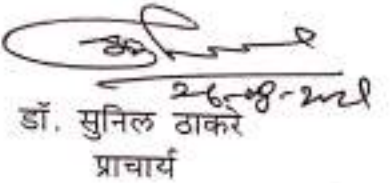 26-08-2021
डॉ. सुनिल ठाकरे
प्राचार्य